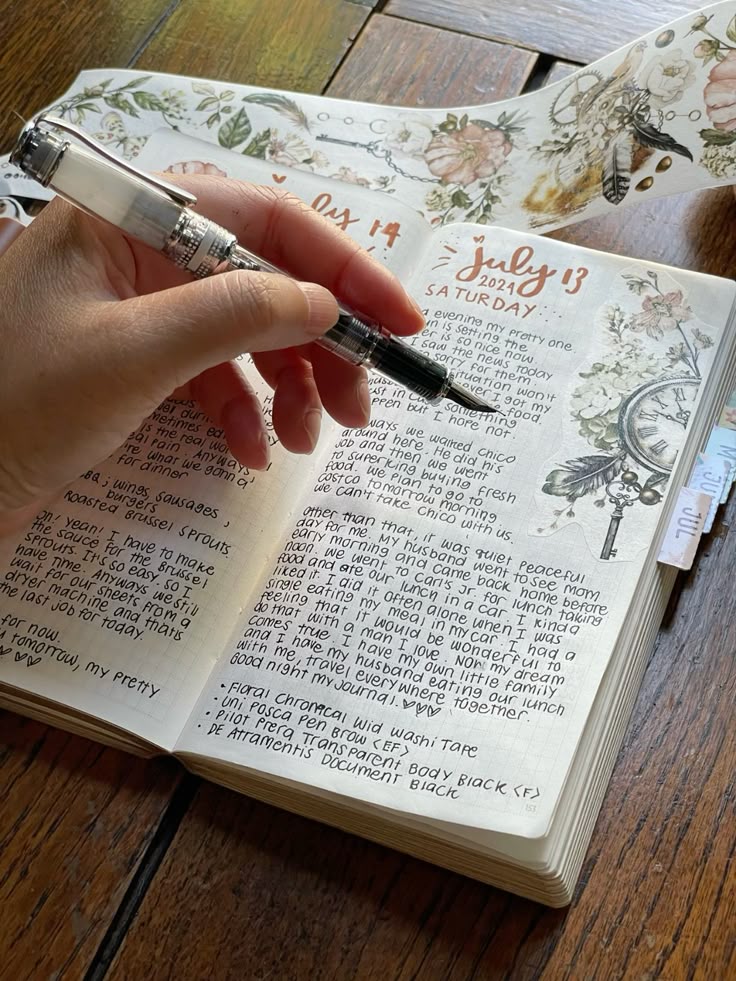 July 14
sometimes ea
real rain. Anyways
is the real wor
re what we gonna
for dinner
BBQ ; wings, sausages ,
burgers
Roasted Brussel sprouts.
on! yeah! I have to make
the sauce for the Brussel
sprouts. It's so easy. so I
have time. Anyways we still
wait for our sheets from a
dryer machine and thats
the last job for today.
for now.
u tomorrow, my pretty
July 13
2024
SATURDAY
d evening my pretty one.
n is setting the
er is so nice now.
I saw the news today
sorry for them.
situation won't
over I got my
ust in case food.
something
ppen but I hope not.
ways we walked Chico
around here. He did his
job and then we went
to supericing buying fresh
food. We plan to go to
costco tomorrow morning
we can't take Chico with us.
Other than that, it was quiet, peaceful
day for me. My husband went to see mom
early morning and came back home before
noon. We went to Carl's Jr. for lunch taking
food and ate our lunch in a car. I kinda
liked it. I did it often alone when I was
single eating my meal in my car. I had a
feeling that it would be wonderful to
do that with a man I love. Now my dream
comes true. I have my own little family
and I have my husband eating our lunch
with me, travel everywhere together.
Good night my Journal.
• Floral Chronical Wid Washi Tape
• Uni Posca Pen Brow <EF>
• Pilot Prera Transparent Body Black <F>
• DE ATramentis Document Black
153
JUL